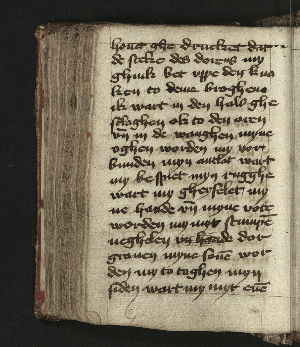 houet ghe drucket dat
de steke des dorens my
ghink bet vppe den kna
ken to deme breghene
ik wart in den hals ghe
slaghen ok to den oren
vn̄ in de wanghen myne
oghen worden my vor
bunden myn antlat wart
my bespiet myn rugghe
wart my ghegheiselet my
ne hande vn̄ myne vote
worden my myt stumpē
neghelen vn̄ hande dor
grauen myne senē wor
den my to toghen myn
siden wart my myt enē